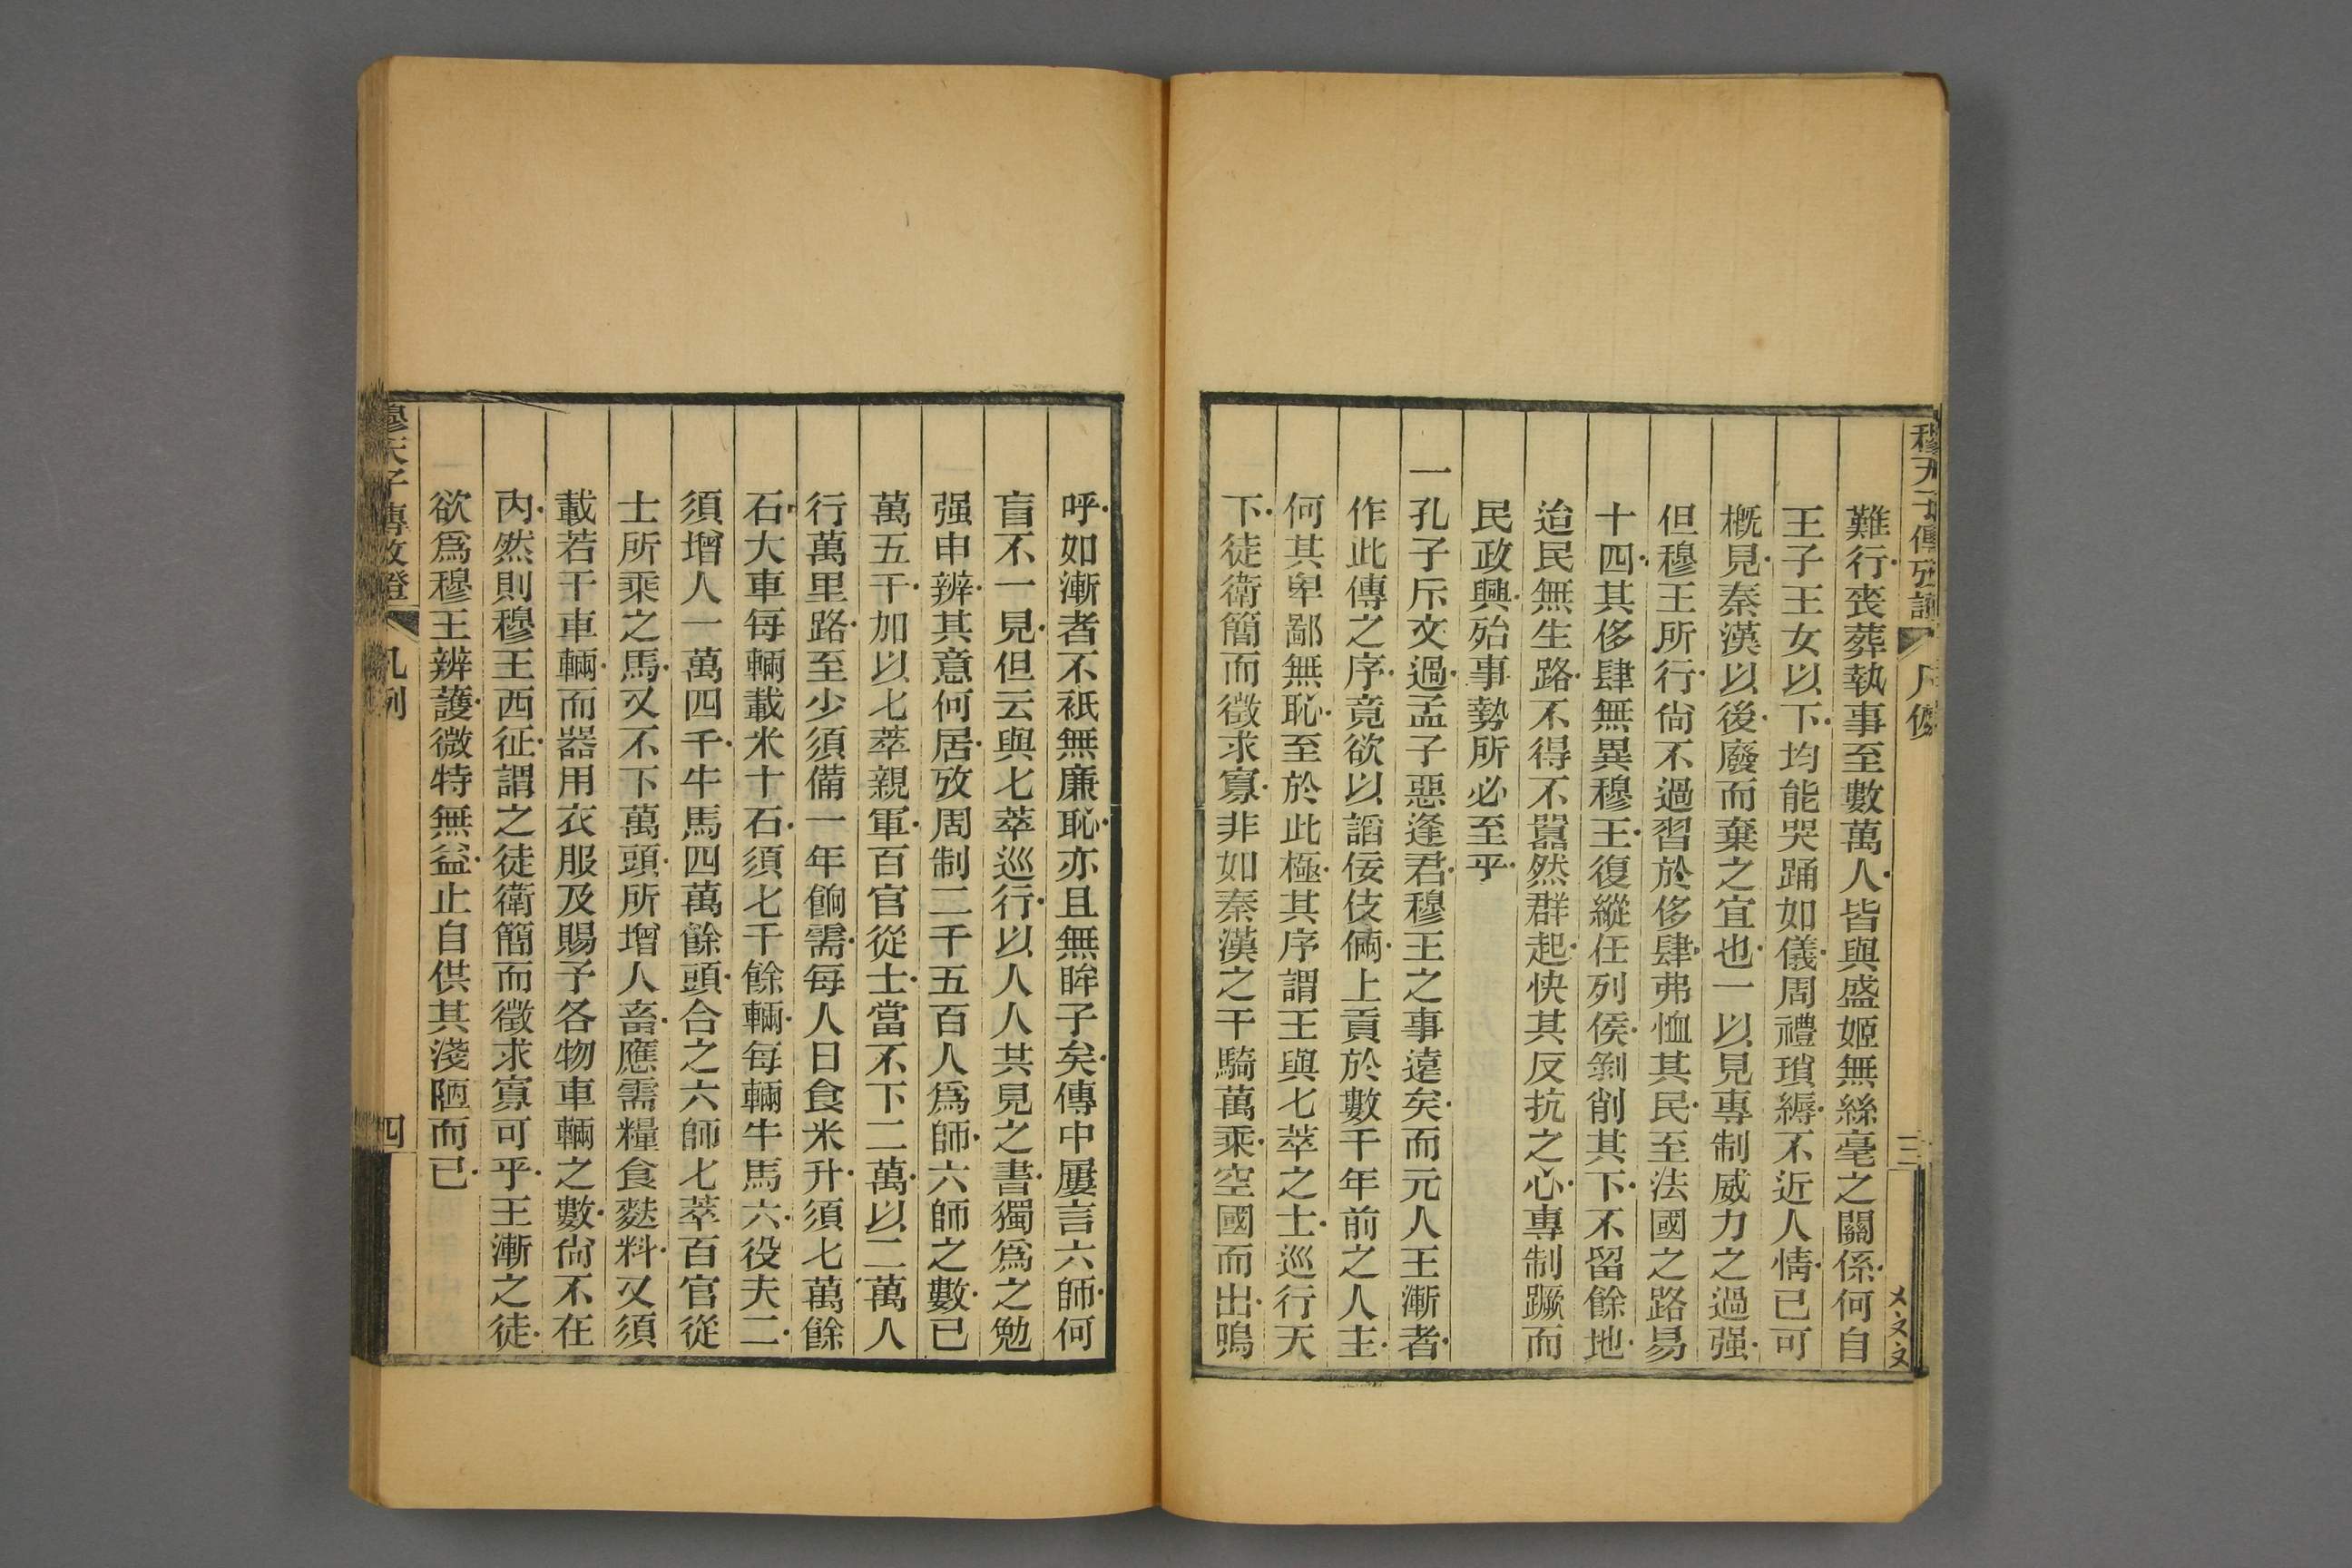 穆天子傳攷證 凡例 三
難行·喪葬執事至數萬人·皆與盛姬無絲毫之關係·何自
王子王女以下·均能哭踊如儀·周禮瑣縟·不近人情·已可
概見·秦漢以後·廢而棄之宜也·一以見專制威力之過强·
但穆王所行·尙不過習於侈肆·弗恤其民·至法國之路易
十四·其侈肆無異穆王·復縱任列侯·剝削其下·不留餘地·
迨民無生路·不得不嚣然群起·快其反抗之心·專制蹶而
民政興·殆事勢所必至乎·
一孔子斥文過·孟子惡逢君·穆王之事遠矣·而元人王漸者·
作此傳之序·竟欲以謟佞伎倆·上貢於數千年前之人主·
何其卑鄙無恥·至於此極·其序謂王與七萃之士·巡行天
下·徒衛簡而徵求寡·非如秦漢之千騎萬乘·空國而出·嗚
呼·如漸者不衹無廉恥·亦且無眸子矣·傳中屢言六師·何
盲不一見·但云與七萃巡行·以人人共見之書·獨爲之勉
强申辨·其意何居·攷周制二千五百人爲師·六師之數·已
萬五千·加以七萃親軍·百官從士·當不下二萬·以二萬人
行萬里路·至少須備一年餉需·每人日食米升·須七萬餘
石·大車每輛載米十石·須七千餘輛·每輛牛馬六·役夫二·
須增人一萬四千·牛馬四萬餘頭·合之六師七萃百官從
士所乘之馬·又不下萬頭·所增人畜·應需糧食麩料·又須
載若干車輛·而器用衣服及賜予各物車輛之數·尙不在
內·然則穆王西征·謂之徒衛簡而徵求寡可乎·王漸之徒·
欲爲穆王辨護·微特無益·止自供其淺陋而已·
穆天子傳攷證 凡例 四